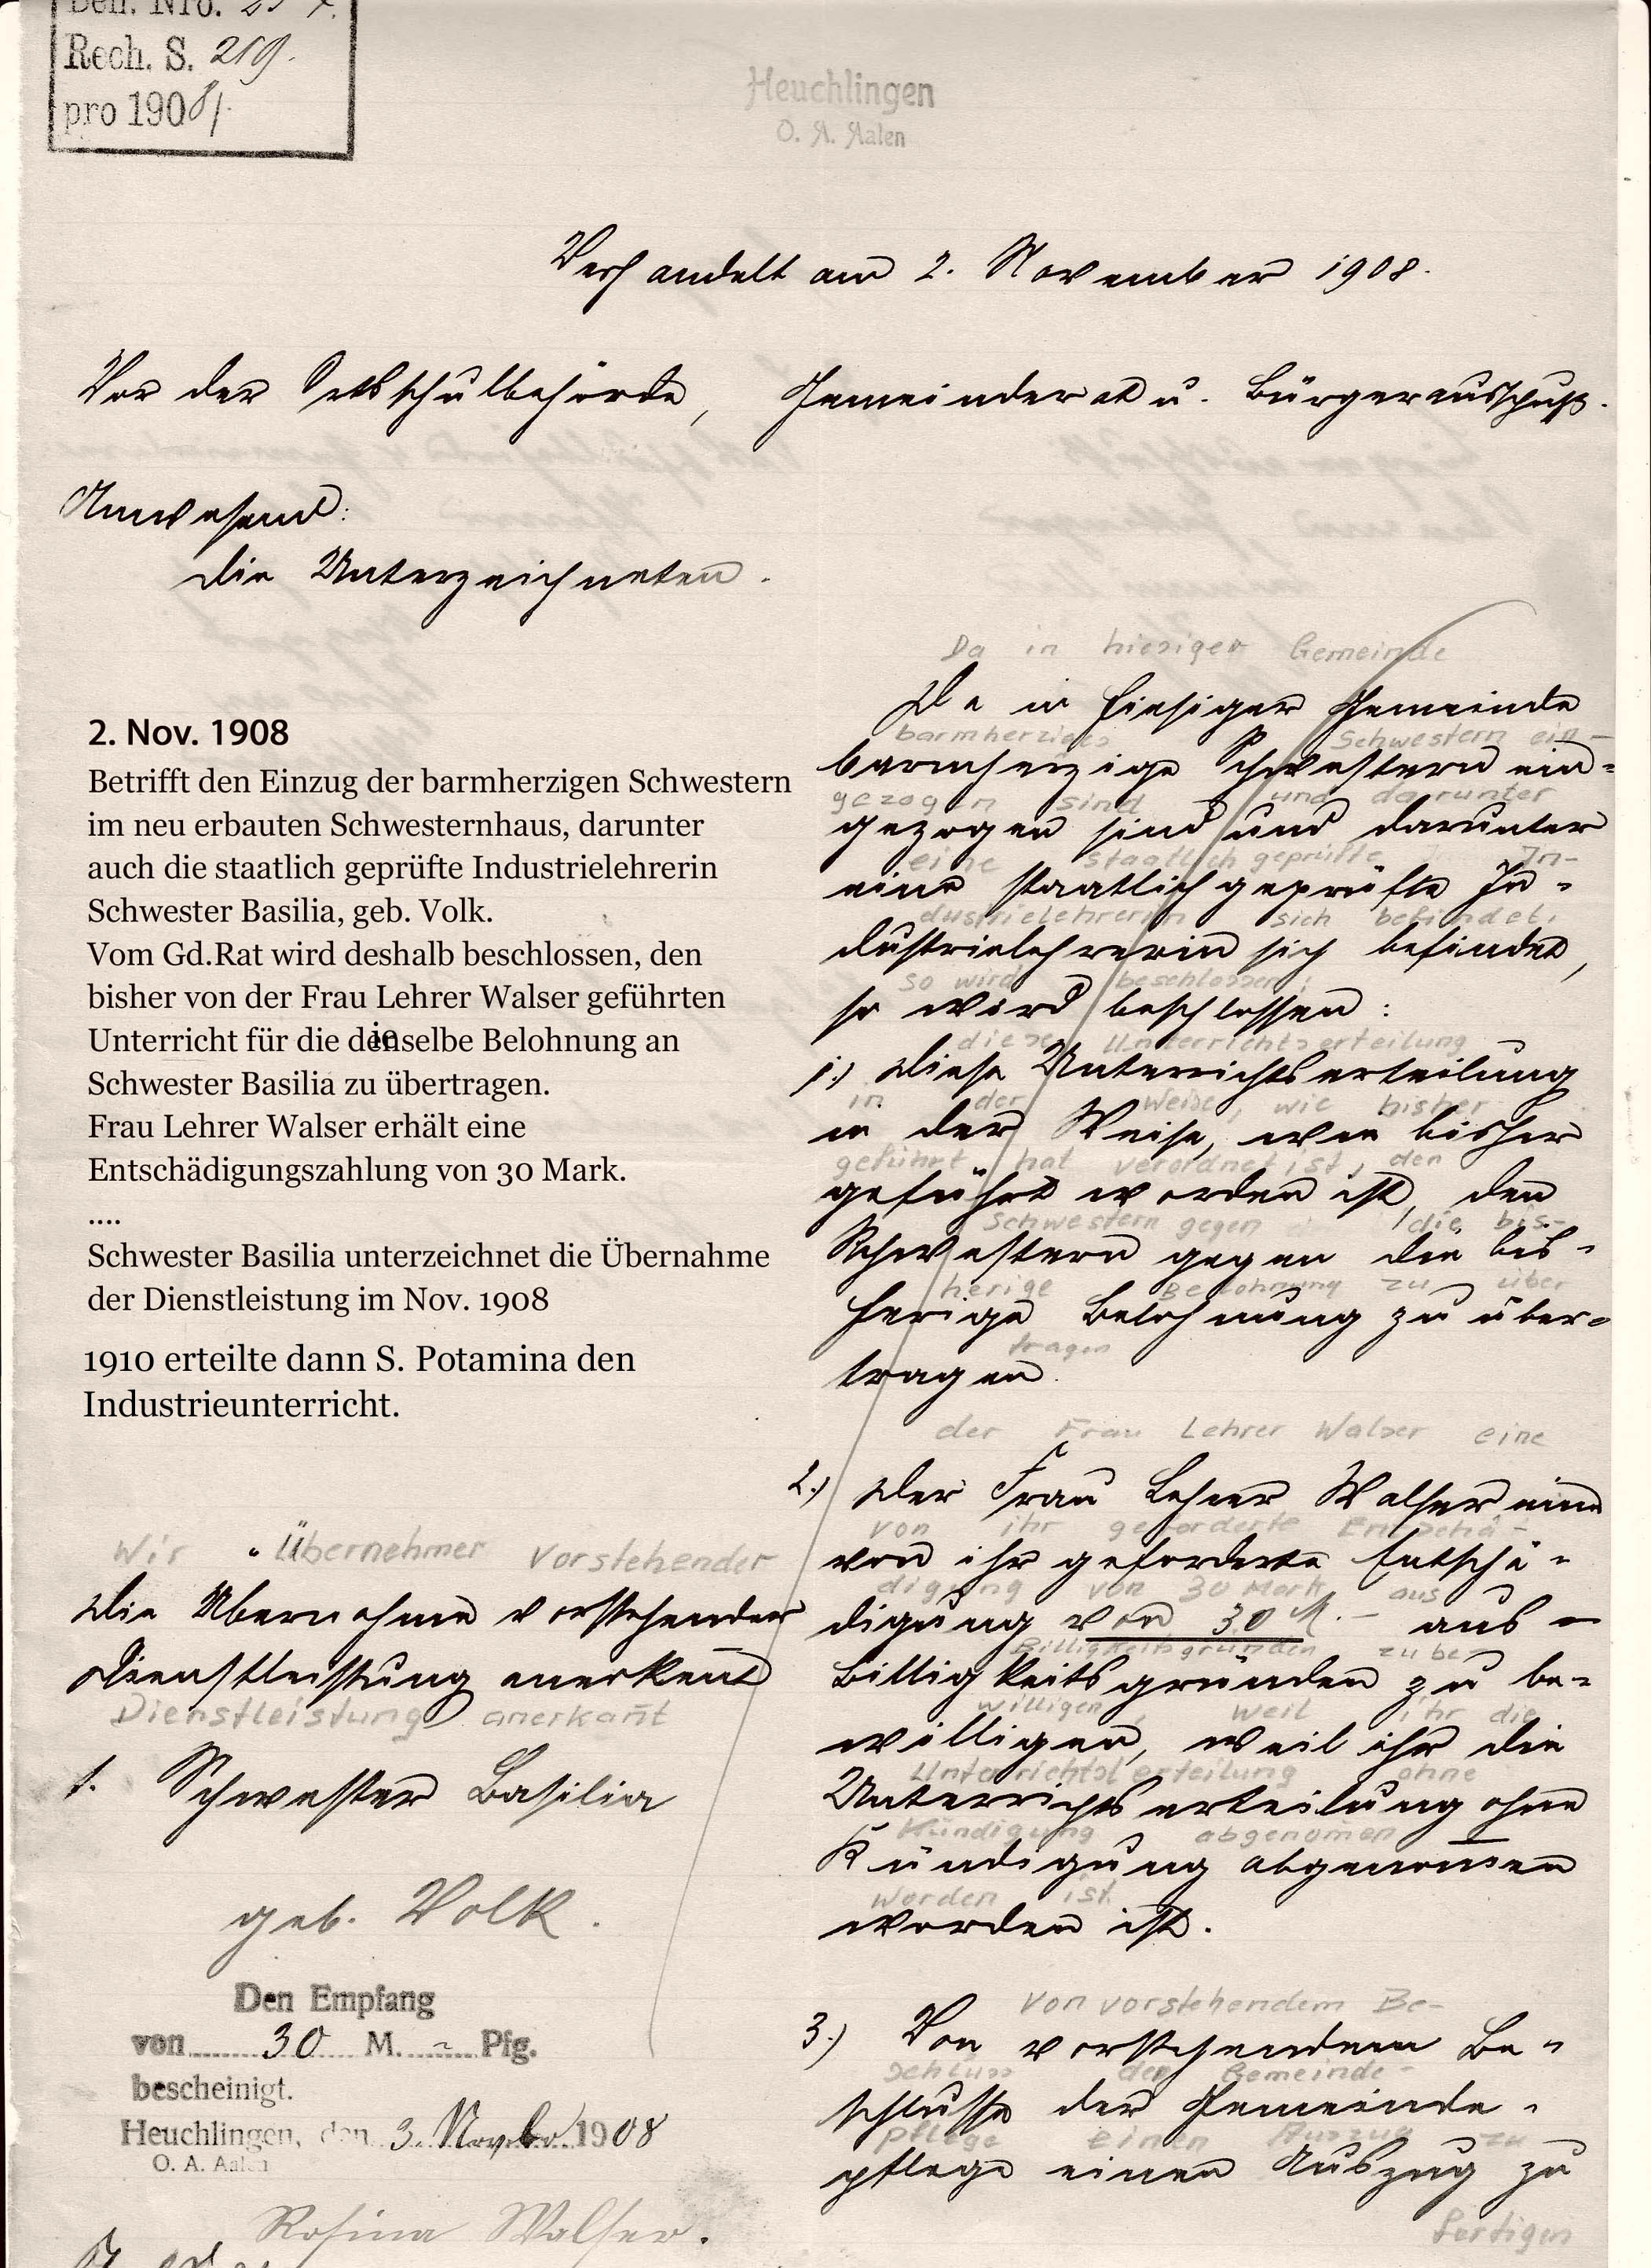 Beil. Nro. 237.
Rech. S. 219.
pro 1908/
Heuchlingen
O. A. Aalen
Verhandelt am 2. November 1908.
Vor der Ortsschulbehörde, Gemeinderat u. Bürgerausschuß.
Anwesend:
die Unterzeichneten.
2. Nov. 1908
Betrifft den Einzug der barmherzigen Schwestern
im neu erbauten Schwesternhaus, darunter
auch die staatlich geprüfte Industrielehrerin
Schwester Basilia, geb. Volk.
Vom Gd.Rat wird deshalb beschlossen, den
bisher von der Frau Lehrer Walser geführten
Unterricht für die dieselbe Belohnung an
Schwester Basilia zu übertragen.
Frau Lehrer Walser erhält eine
Entschädigungszahlung von 30 Mark.
....
Schwester Basilia unterzeichnet die Übernahme
der Dienstleistung im Nov. 1908
1910 erteilte dann S. Potamina den
Industrieunterricht.
Wir Übernehmer vorstehender
die Übernahme vorstehender
Dienstleistung anerkennt
Dienstleistung anerkañt
1. Schwester Basilia
geb. Volk.
Den Empfang
von 30 M. - Pfg.
bescheinigt.
Heuchlingen, den 3. Novbr. 1908
O. A. Aalen
Rosina Walser.
Da in hiesiger Gemeinde
Da in hiesiger Gemeinde
barmherzige Schwestern ein-
barmherzige Schwestern ein-
gezogen sind und darunter
gezogen sind und darunter
eine staatlich geprüfte In-
eine staatlich geprüfte In-
dustrielehrerin sich befindet,
dustrielehrerin sich befindet,
so wird beschlossen:
so wird beschlossen:
diese Unterrichtserteilung
1.) diese Unterrichtserteilung
in der Weise, wie bisher
in der Weise, wie bisher
geführt hat verordnet ist, den
geführt worden ist, den
Schwestern gegen die bis-
Schwestern gegen die bis-
herige Belohnung zu über
herige Belohnung zu über-
tragen
tragen.
der Frau Lehrer Walser eine
2.) der Frau Lehrer Walser eine
von ihr geforderte Entschä-
von ihr geforderte Entschä-
digung von 30 Mark aus
digung von 30 M. – aus
Billigkeitsgründen zu be-
Billigkeitsgründen zu be-
willigen, weil ihr die
willigen, weil ihr die
Unterrichtserteilung ohne
Unterrichtserteilung ohne
Kündigung abgenomen
Kündigung abgenom̄en
worden ist
worden ist.
Von vorstehendem Be-
3.) Von vorstehendem Be-
schluss der Gemeinde-
schlusse der Gemeinde-
pflege einen Auszug zu
pflege einen Auszug zu
fertigen